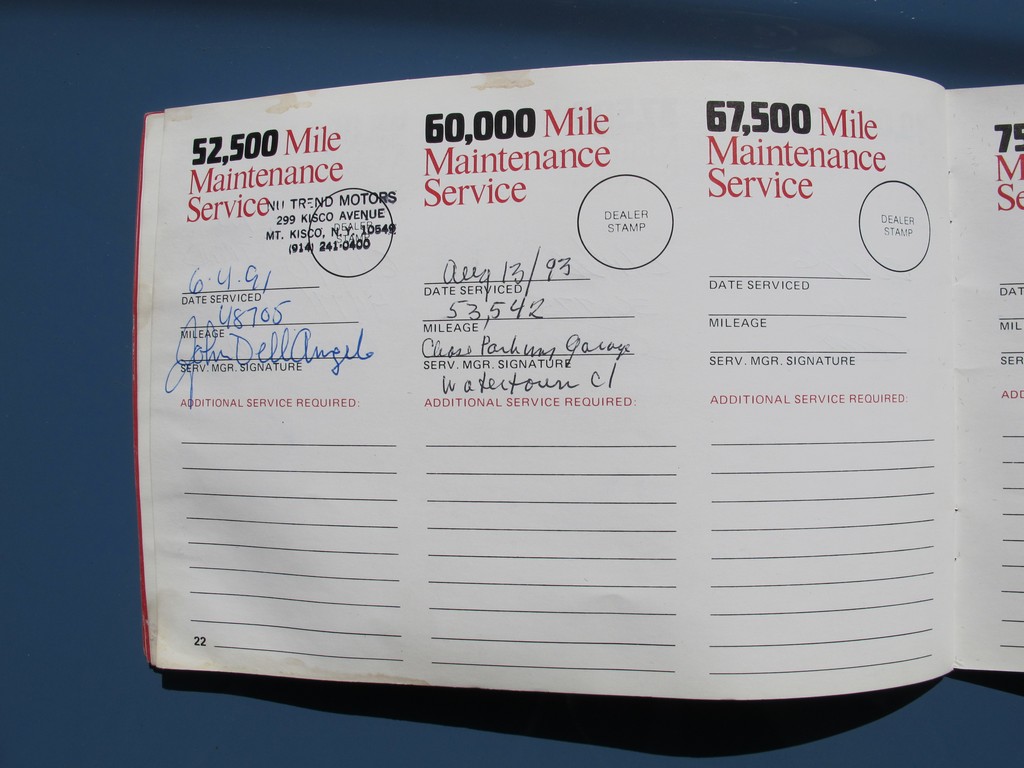 52,500 Mile
Maintenance
Service
NU TREND MOTORS
299 KISCO AVENUE
MT. KISCO, N.Y. 10549
(914) 241-0400
DEALER
STAMP
6.4.91
DATE SERVICED
48705
MILEAGE
John Dell Angelo
SERV. MGR. SIGNATURE
ADDITIONAL SERVICE REQUIRED:
22
60,000 Mile
Maintenance
Service
DEALER
STAMP
Aug 13/93
DATE SERVICED
53,542
MILEAGE
Chase Parkway Garage
SERV. MGR. SIGNATURE
Watertown Ct
ADDITIONAL SERVICE REQUIRED:
67,500 Mile
Maintenance
Service
DEALER
STAMP
DATE SERVICED
MILEAGE
SERV. MGR. SIGNATURE
ADDITIONAL SERVICE REQUIRED:
75
M
Se
DAT
MIL
SER
ADD